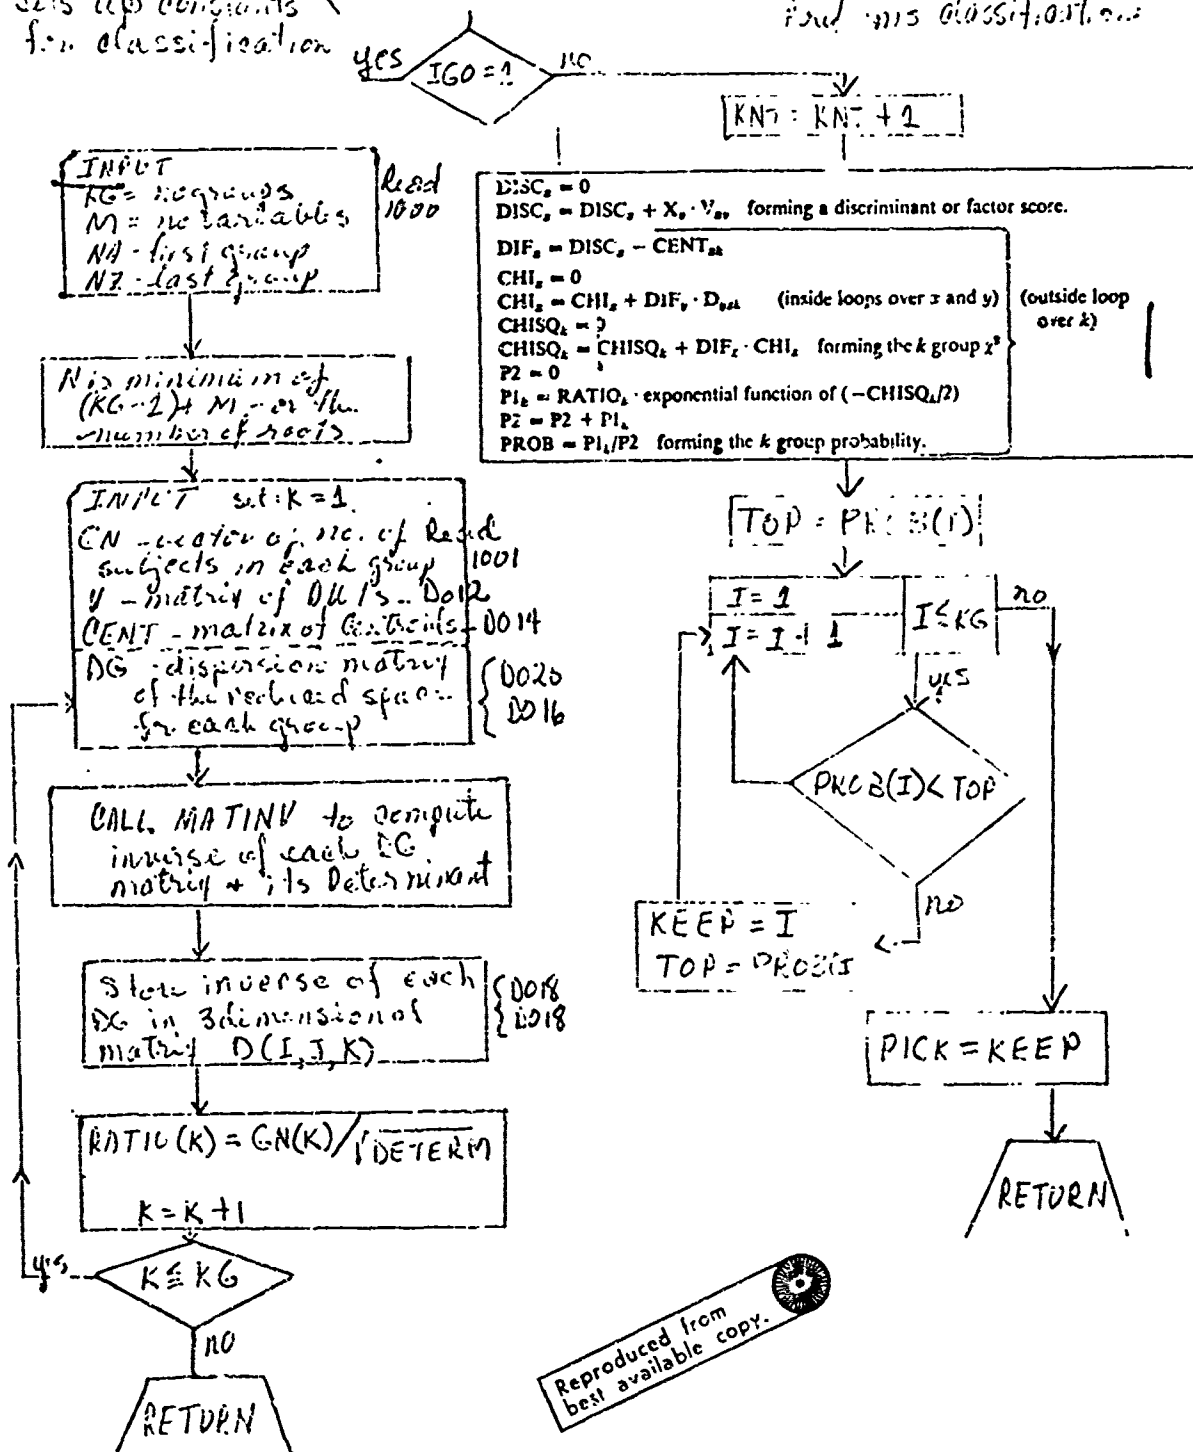 sets up constants
for classification
find his classification
yes
IGO = 1
no
KNT = KNT + 1
INPUT
KG = no groups
M = no variables
NA - first group
NZ - last group
Read
1000
N is minimum of
(KG-1)+ M - or the
number of roots
INPUT set: K = 1
GN - vector of no. of
subjects in each group
Read
1001
V - matrix of DU's - DO12
CENT - matrix of Centroids - DO14
DG - dispersion matrix
of the reduced space
for each group
DO20
DO16
CALL MATINV to compute
inverse of each DG
matrix + its Determinant
Store inverse of each
DG in 3 dimensional
matrix D(I,J,K)
DO18
DO18
RATIO(K) = GN(K)/√DETERM
K = K +1
K ≤ KG
yes
no
RETURN
DISCₓ = 0
DISCₓ = DISCₓ + Xᵥ · Vₓᵥ forming a discriminant or factor score.
DIFₓ = DISCₓ − CENTₓₖ
CHIₓ = 0
CHIₓ = CHIₓ + DIFᵧ · Dᵧₓₖ (inside loops over x and y)
(outside loop
over k)
CHISQₖ = 0
CHISQₖ = CHISQₖ + DIFₓ · CHIₓ forming the k group χ²
P2 = 0
P1ₖ = RATIOₖ · exponential function of (−CHISQₖ/2)
P2 = P2 + P1ₖ
PROB = P1ₖ/P2 forming the k group probability.
TOP = PROB(1)
I = 1
I = I + 1
I ≤ KG
no
yes
PROB(I) < TOP
no
KEEP = I
TOP = PROB(I
PICK = KEEP
RETURN
Reproduced from
best available copy.